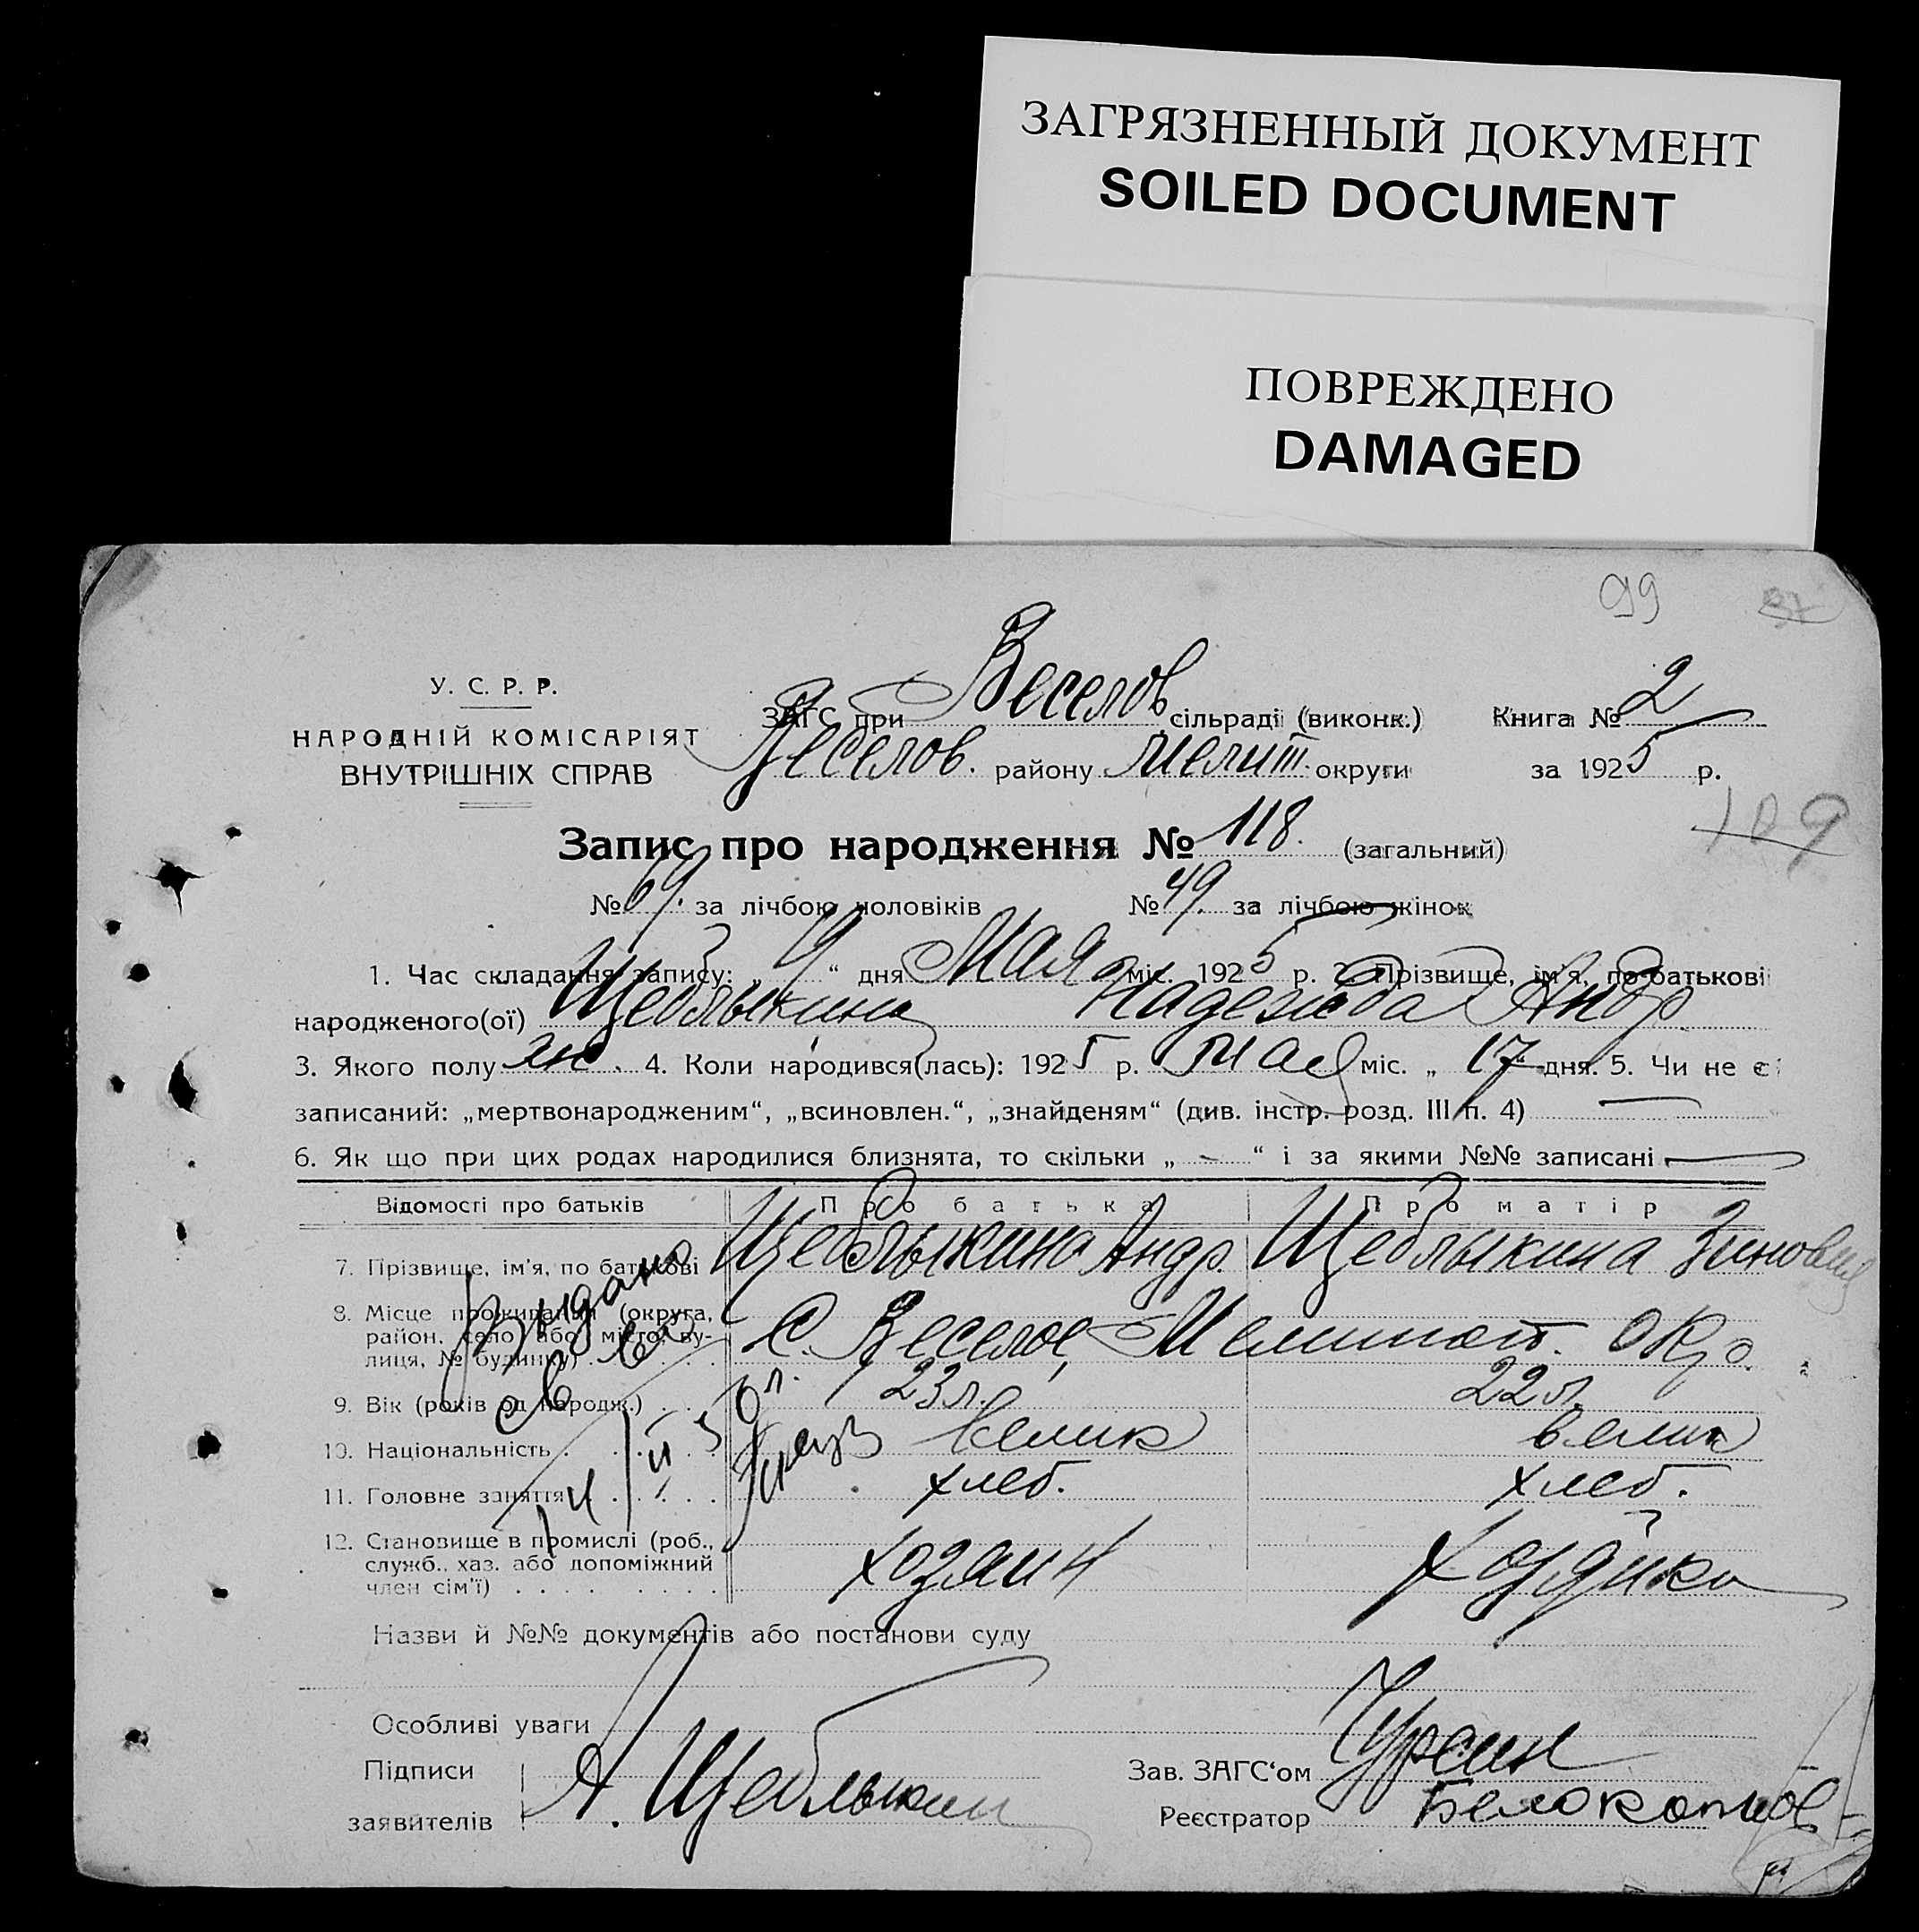 ЗАГРЯЗНЕННЫЙ ДОКУМЕНТ
SOILED DOCUMENT
ПОВРЕЖДЕНО
DAMAGED
99 37
У. С. Р. Р.
НАРОДНІЙ КОМІСАРІЯТ
ВНУТРІШНІХ СПРАВ
ЗАГС при Веселов сільраді (виконк.) Книга № 2
Веселов. району Мелит. округи за 1925 р.
109
Запис про народження № 118. (загальний)
№ 69. за лічбою чоловіків № 49. за лічбою жінок
1. Час складання запису: „ 9 “ дня Мая міс. 1925 р. 2. Прізвище, ім'я, по-батькові
народженого(ої) Щеблыкина Надежда Андр
3. Якого полу ж. 4. Коли народився(лась): 1925 р. мая міс. „ 17 дня. 5. Чи не є
записаний: „мертвонародженим“, „всиновлен.“, „знайденям“ (див. інстр. розд. III п. 4) —
6. Як що при цих родах народилися близнята, то скільки „ - “ і за якими №№ записані —
Відомості про батьків Про батька Про матір
7. Прізвище, ім'я, по батькові Щеблыкина Андр. Щеблыкина Зиновия
8. Місце проживання (округа, район, село або місто, вулиця, № будинку) С. Веселое, Мелитоп. окр.
9. Вік (років од народж.) 23 л. 22 л.
10. Національність велик велик
11. Головне заняття хлеб. хлеб.
12. Становище в промислі (роб., служб., хаз. або допоміжний член сім'ї) хозяин хозяйка
Выдано
св во
14/II 5
Назви й №№ документів або постанови суду
Особливі уваги
Підписи заявителів А. Щеблыкин
Зав. ЗАГС'ом Чурсин
Реєстратор Белокопытов